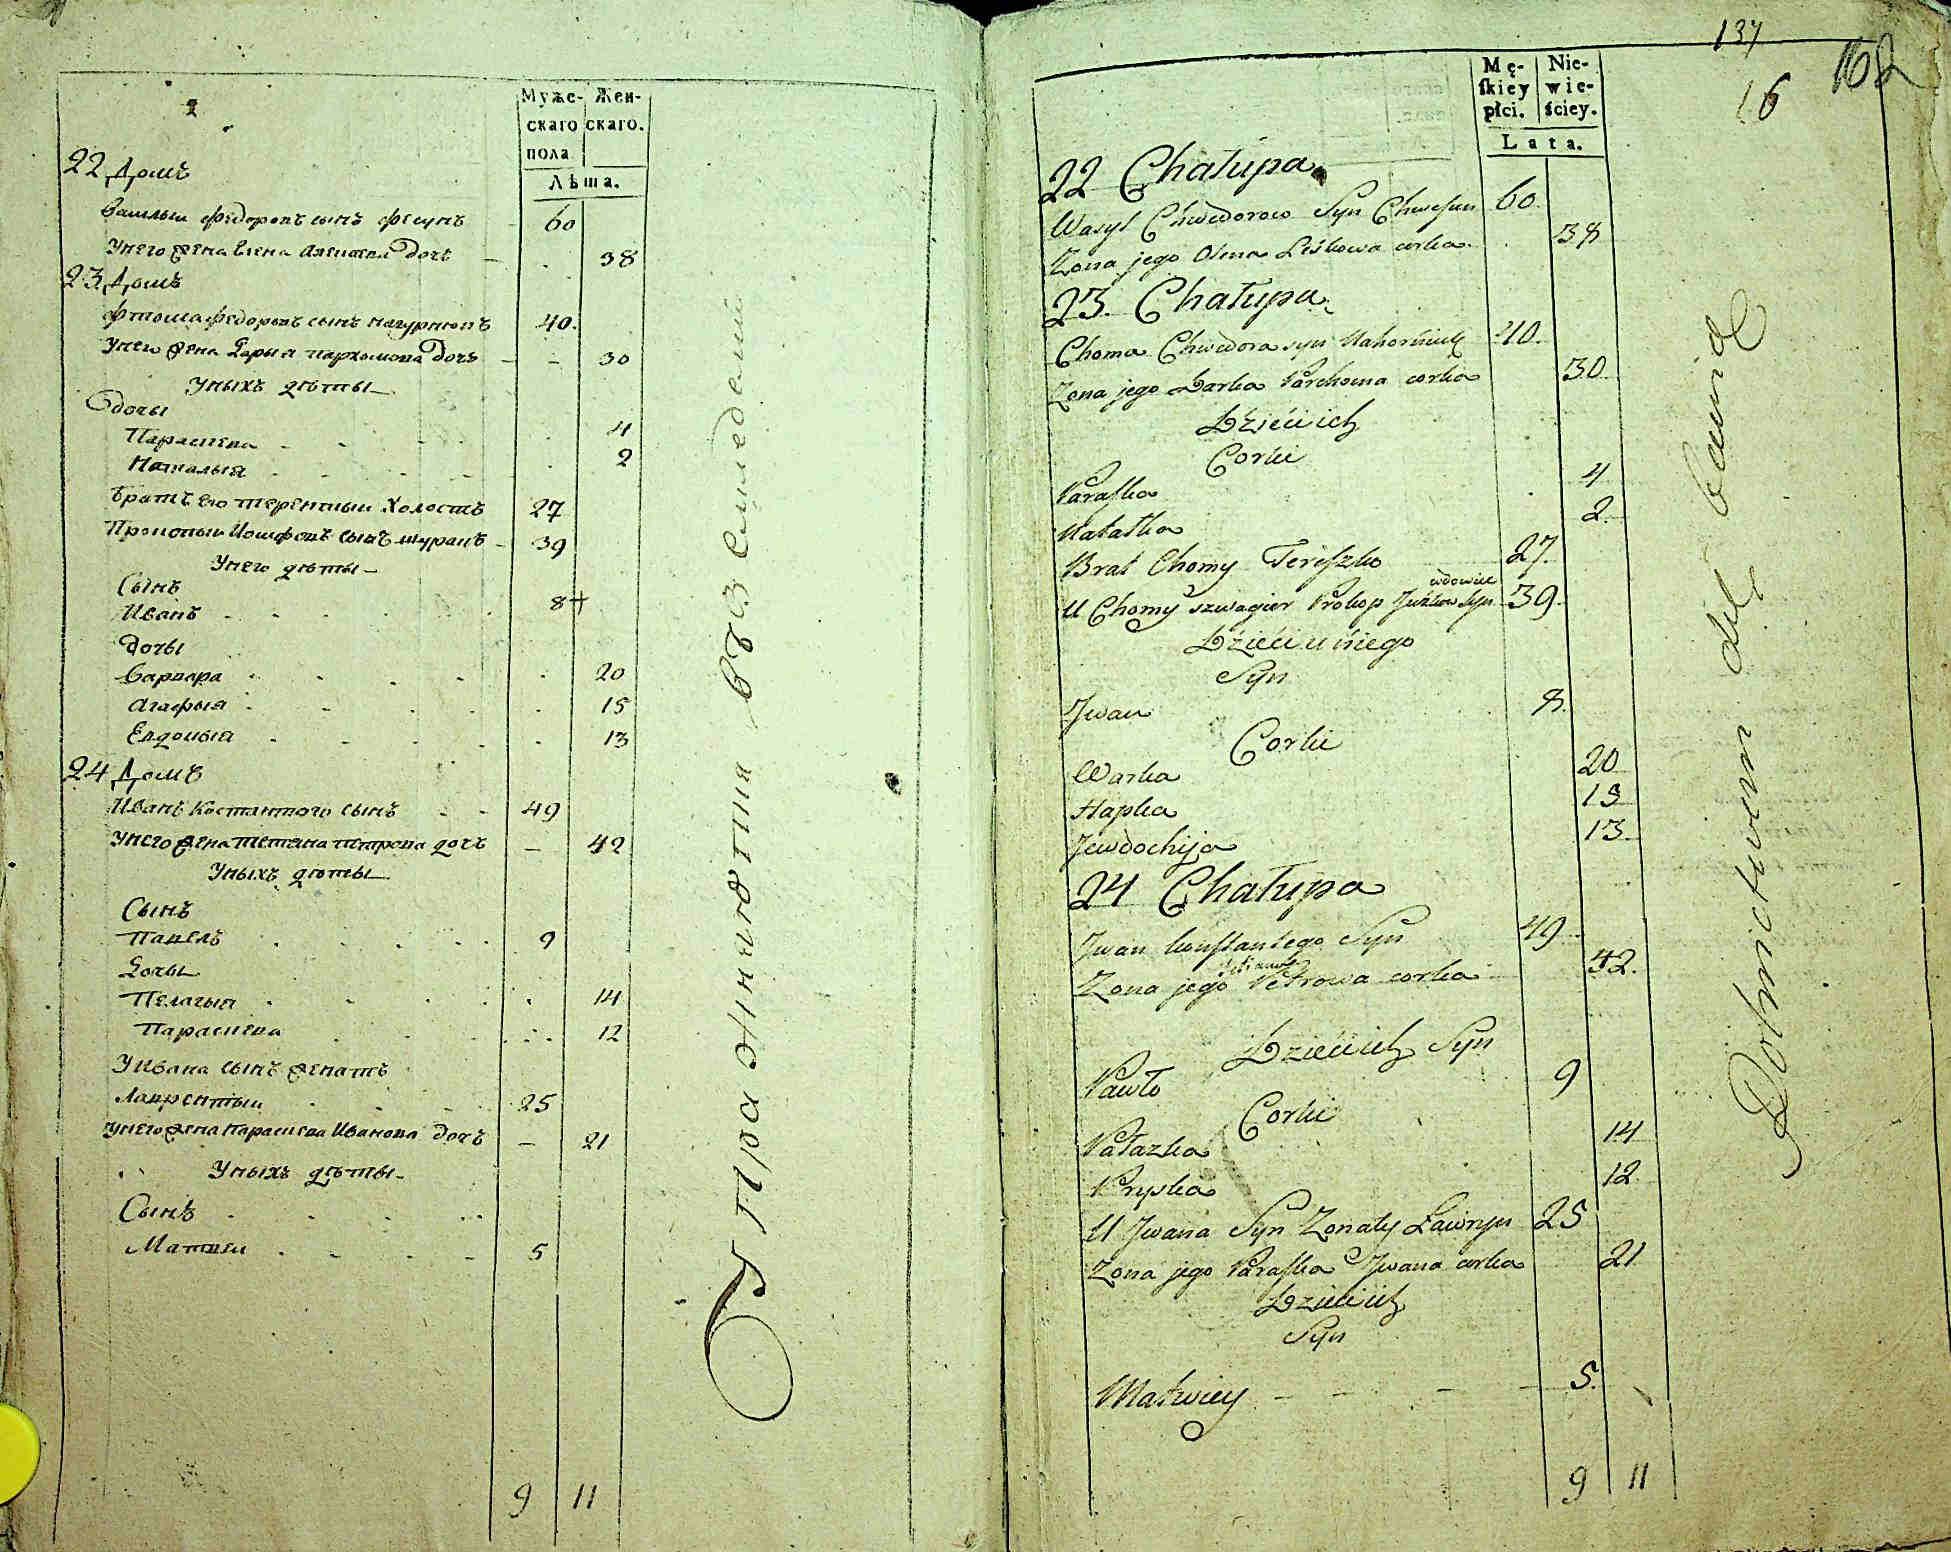 Муже- Жен-
скаго скаго.
пола
Лѣта.
22 Домъ
Василы Федоровъ сынъ Фесунъ 60
Унего жена Елена Алексеева дочь 38
23 Домъ
Фтома Федоровъ сынъ 40.
Унего жена Дарыя пархомова дочь 30
Уныхъ дѣты
Дочы
Параскева 4
Наталыя 2
Братъ его терентыы Холостъ 27
Прокопыы Иосифовъ сынъ шуранъ 39
Унего дѣты
Сынъ
Иванъ 8
Дочы
Варвара 20
Агафыя 15
Евдокыя 13
24 Домъ
Иванъ Костантого сынъ 49
Унего жена тетяна петрова дочь 42
Уныхъ дѣты
Сынъ
Павелъ 9
Дочы
Пелагыя 14
Параскева 12
Уивана сынъ женатъ
Лаврентыы 25
Унего жена параскева Иванова дочь 21
Уныхъ дѣты
Сынъ
Матвеы 5
9 11
137
168
16
Mę- Nie-
skiey wie-
płci. ściey.
Lata.
22 Chałupa
Wasyl Chwedorow Syn Chwesun 60.
Zona jego Olena Leśkowa corka 38
23. Chałupa
Choma Chwedora syn Nahorniuk 40.
Zona jego Darka Parchoma corka 30
Dzieci ich
Corki
Paraska 4
Natałka 2.
Brat Chomy Tereszko 27.
wdowiec
U Chomy szwagier Prokop Juzkow Syn 39.
Dzieci u niego
Syn
Jwan 8.
Corki
Warka 20
Hapka 15
Jewdochija 13.
24 Chałupa
Jwan konstantego Syn 49
Zona jego Petrowa corka 42.
Dzieci ich Syn
Pawło 9
Corki
Pałazka 14
Pryska 12
U Jwana Syn Zonaty Ławryn 25
Zona jego Paraska Jwana corka 21
Dzieci ich
Syn
Matwiey 5.
9 11